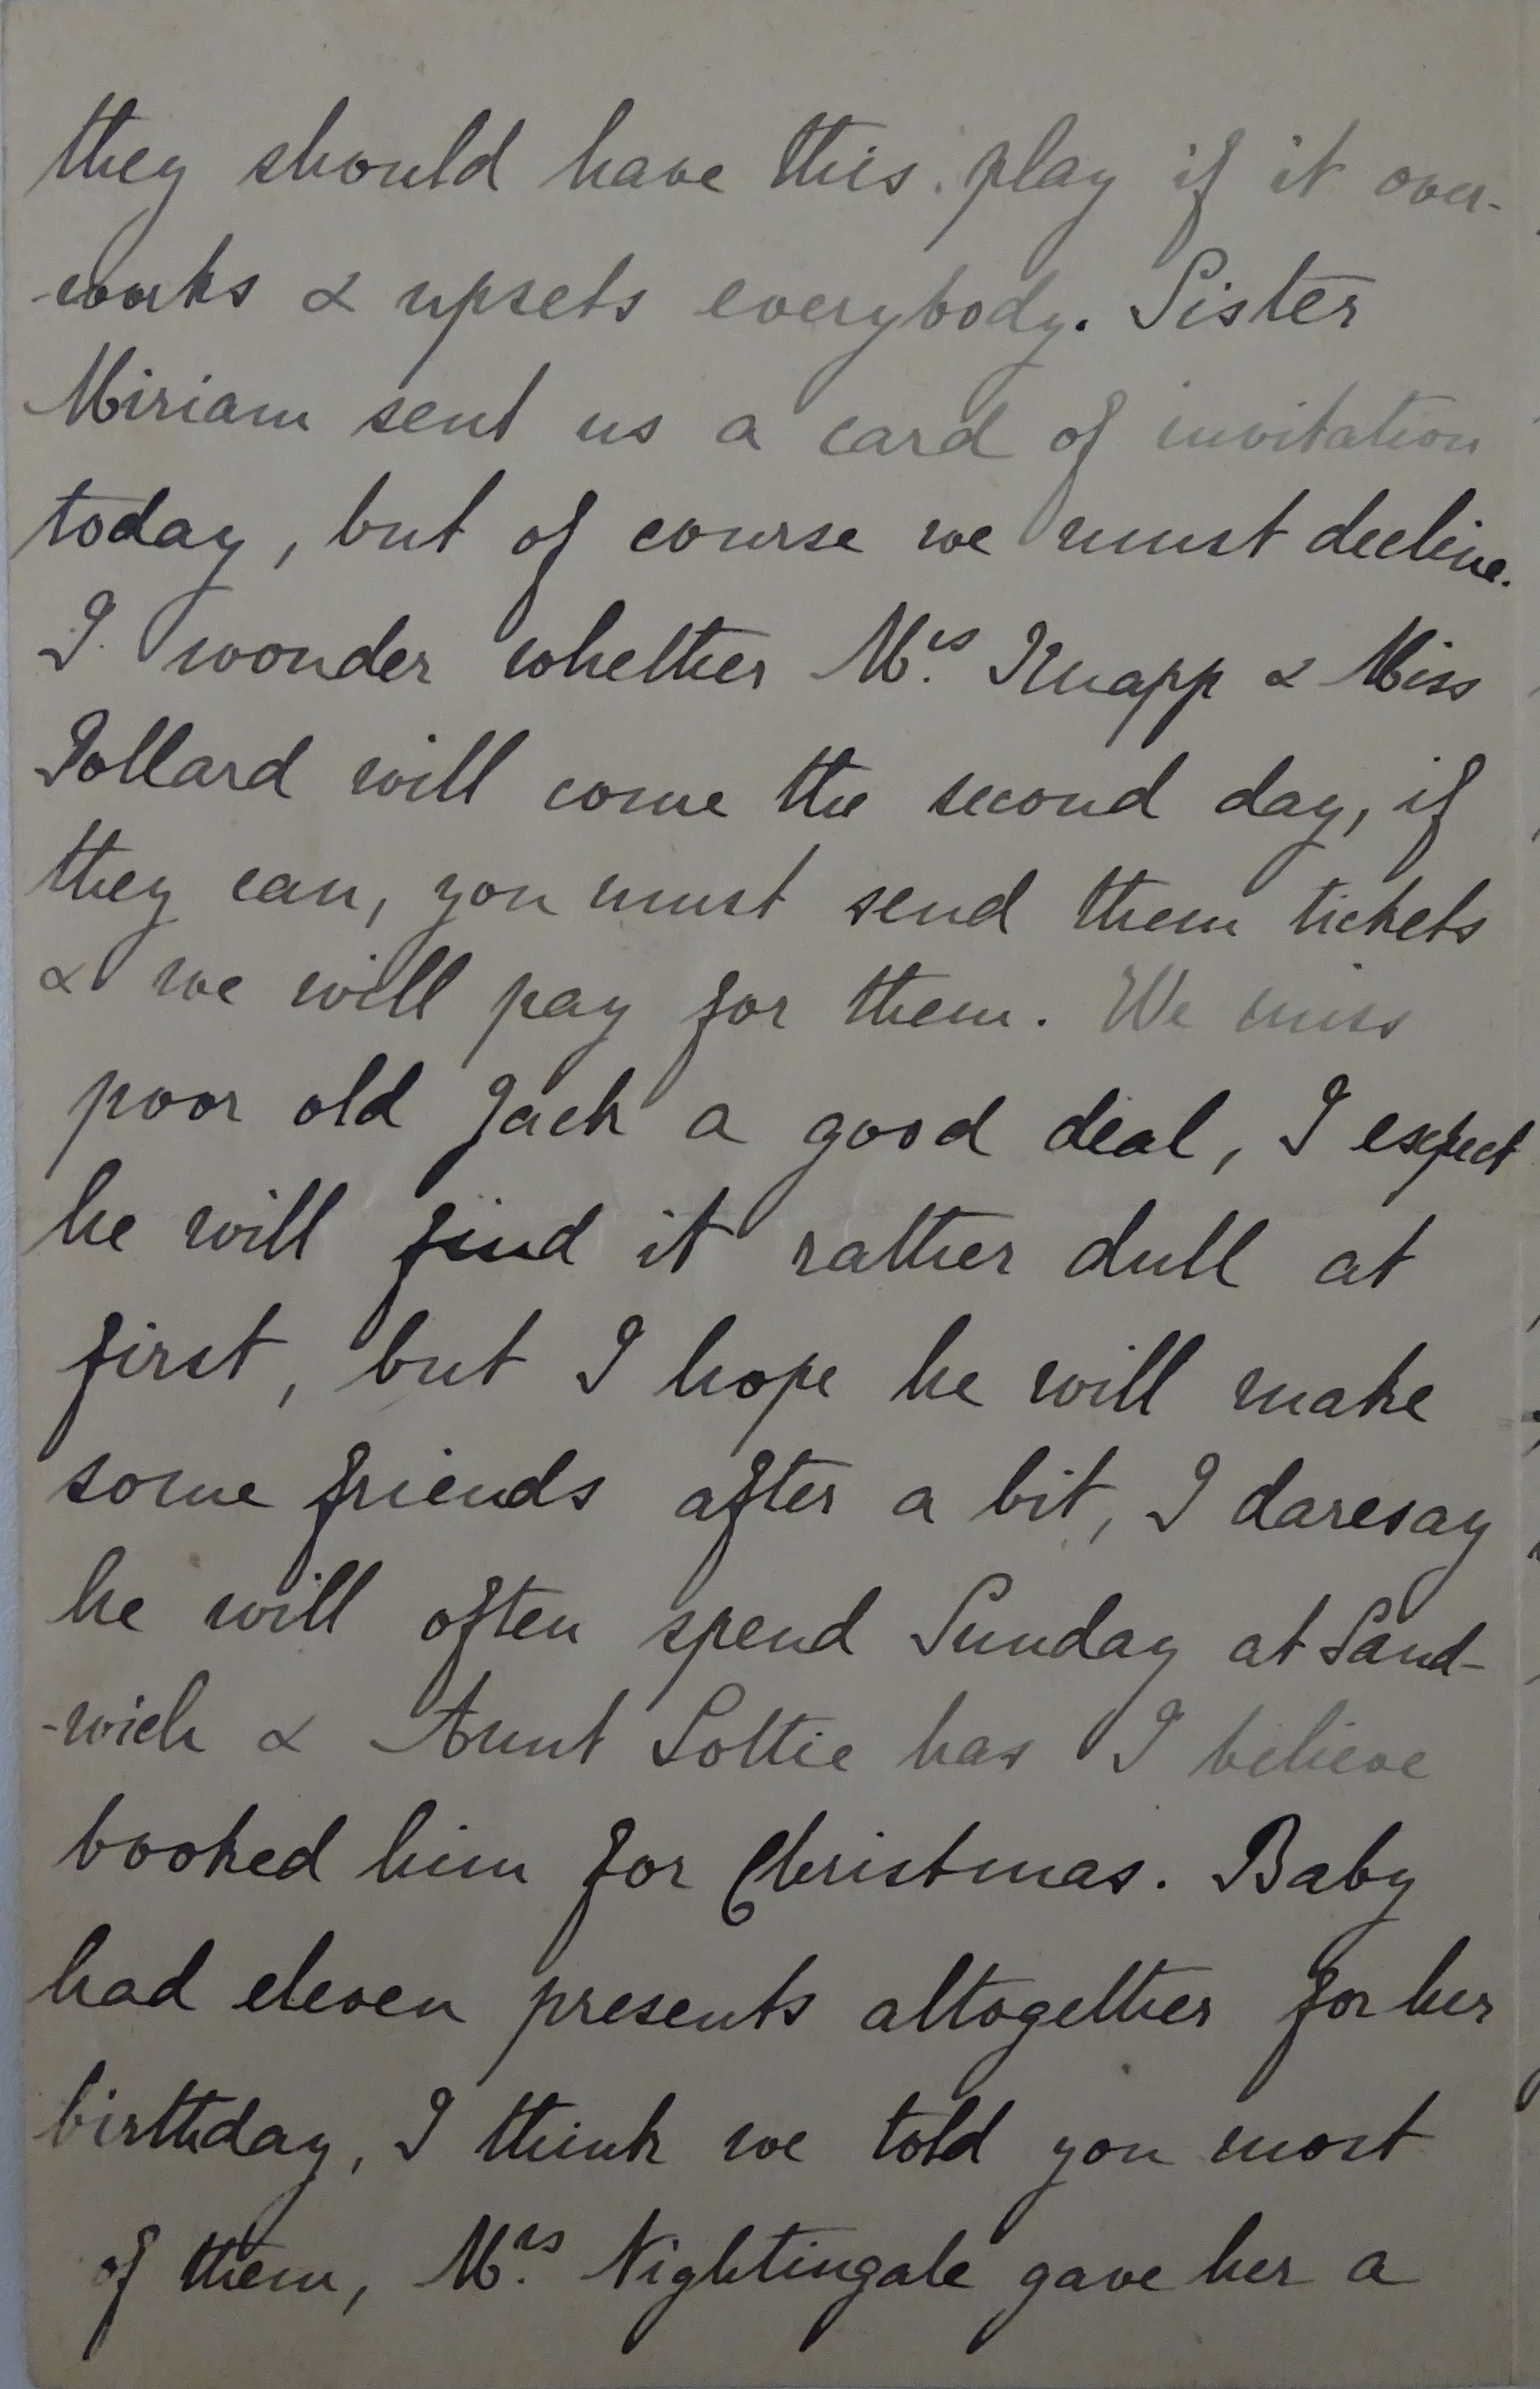 they should have this play if it over-
-works & upsets everybody. Sister
Miriam sent us a card of invitation
today, but of course we must decline.
I wonder whether Mrs. Knapp & Miss
Pollard will come the second day, if
they can, you must send them tickets
& we will pay for them. We miss
poor old Jack a good deal, I expect
he will find it rather dull at
first, but I hope he will make
some friends after a bit, I daresay
he will often spend Sunday at Sand-
-wich & Aunt Lottie has I believe
booked him for Christmas. Baby
had eleven presents altogether for her
birthday, I think we told you most
of them, Mrs. Nightingale gave her a